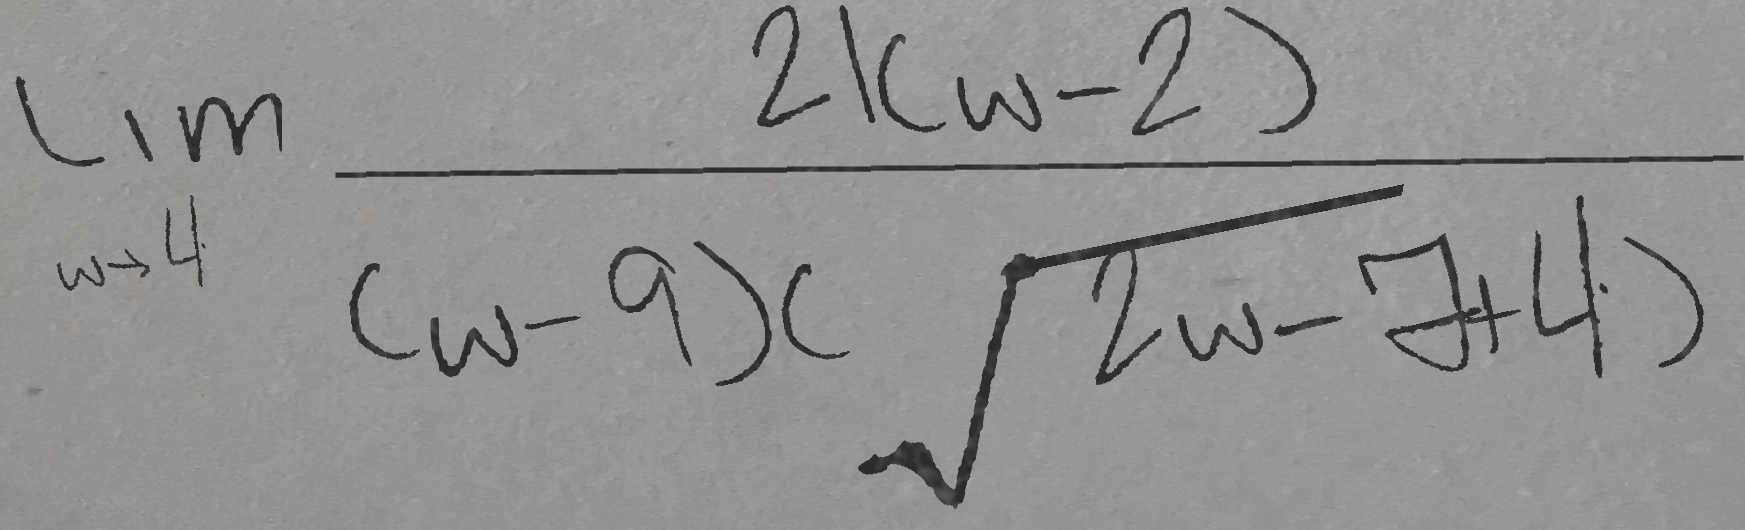 lim w→4 21(w-2) / (w-9)(√2w-7+4)